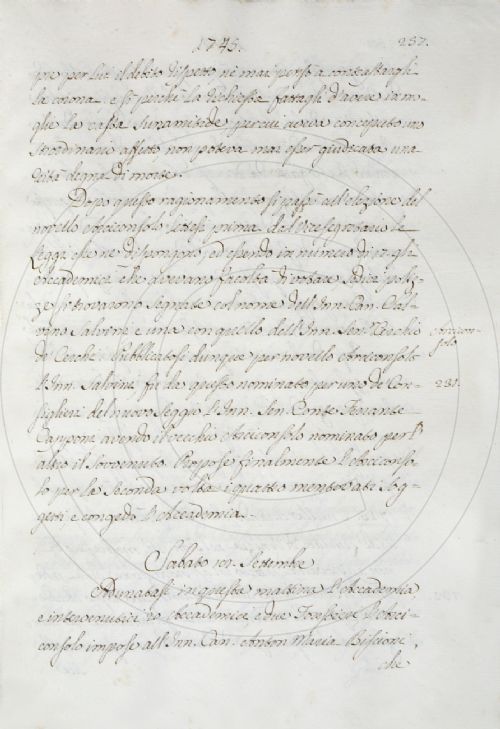 1745. 237.
pre per lui il debito rispetto nè mai pensò a contrastargli
la corona e sì perchè la richiesta fattagli d'avere in mo-
glie la casta Sunamitide per cui aveva conceputo uno
straordinario affetto non poteva mai esser giudicata una
reità degna di morte.
Dopo questo ragionamento si passò all'elezione del
novello Arciconsolo lettesi prima dal Vicesegretario le
Leggi che ne dispongono, ed essendo in numero di 17. gli
Accademici che avevano facoltà di votare sedici poliz-
ze si trovarono segnate col nome dell'Inn. Can. Sal-
vino Salvini e una con quello dell'Inn. Sen. Vecchio
de Cerchi. Pubblicatosi dunque per novello Arciconsolo
Arcicon-
solo
l'Inn. Salvini, fu da questo nominato per uno de Con-
231.
siglieri del nuovo seggio l'Inn. Sen. Conte Ferrante
Capponi avendo il vecchio Arciconsolo nominato per l'
altro il Sollo. Propose finalmente l'Arciconso-
lo per la seconda volta i quattro mentovati sog-
getti e congedò l'Accademia.
Sabato Settembre
Adunatasi in questa mattina l'Accademia
e intervenutivi Accademici e due Forestieri l'Arci-
consolo impose all'Inn. Can. Anton Maria Biscioni,
che